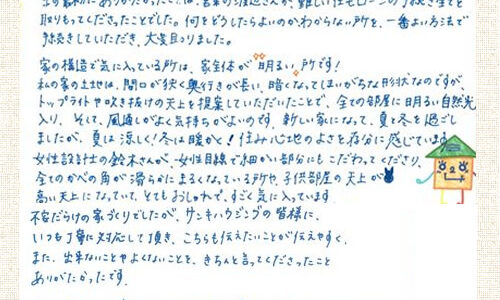 取りもってくださったことでした。何をどうしたらよいのかわからない所を、一番よい方法で
手続きしていただき、大変助かりました。
家の構造で気に入っている所は、家全体が明るい所です!
私の家の土地は、間口が狭く奥行きが長い、暗くなってしまいがちな形状なのですが、
トップライトや吹き抜けの天上を提案していただいたことで、全ての部屋に明るい自然光が
入り、そして、風通しがよく気持ちがよいのです。新しい家になって、夏と冬を過ごし
ましたが、夏は涼しく!冬は暖かく!住み心地のよさを存分に感じています
女性設計士の鈴木さんが、女性目線で細かい部分にもこだわってくださり、
全てのかべの角が滑らかにまるくなっている所や、子供部屋の天上が
高い天上になっていて、とてもおしゃれで、すごく気に入っています
不安だらけの家づくりでしたが、サンキハウジングの皆様に、
いつも丁寧に対応して頂き、こちらも伝えたいことが伝えやすく、
また、出来ないことやよくないことを、きちんと言ってくださったこと
ありがたかったです。